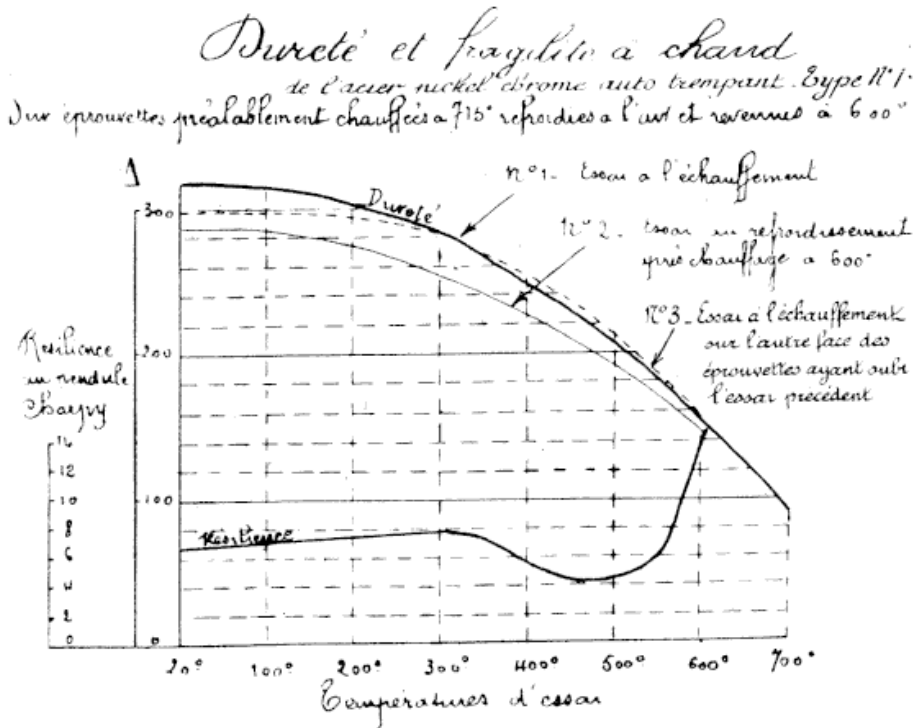 Dureté et fragilité à chaud
de l'acier nickel chrome auto trempant. Type N°1.
Sur éprouvettes préalablement chauffées a 715° refroidies a l'air et revenues à 600°
Δ
n°1 - Essai a l'échauffement
Dureté
300
N° 2 - Essai au refroidissement
après chauffage a 600°
N°3 - Essai à l'échauffement
sur l'autre face des
éprouvettes ayant subi
l'essai précédent
Résilience
au pendule
Charpy
200
14
12
10
100
8
Résilience
6
4
2
0
0
20° 100° 200° 300° 400° 500° 600° 700°
Températures d'essai